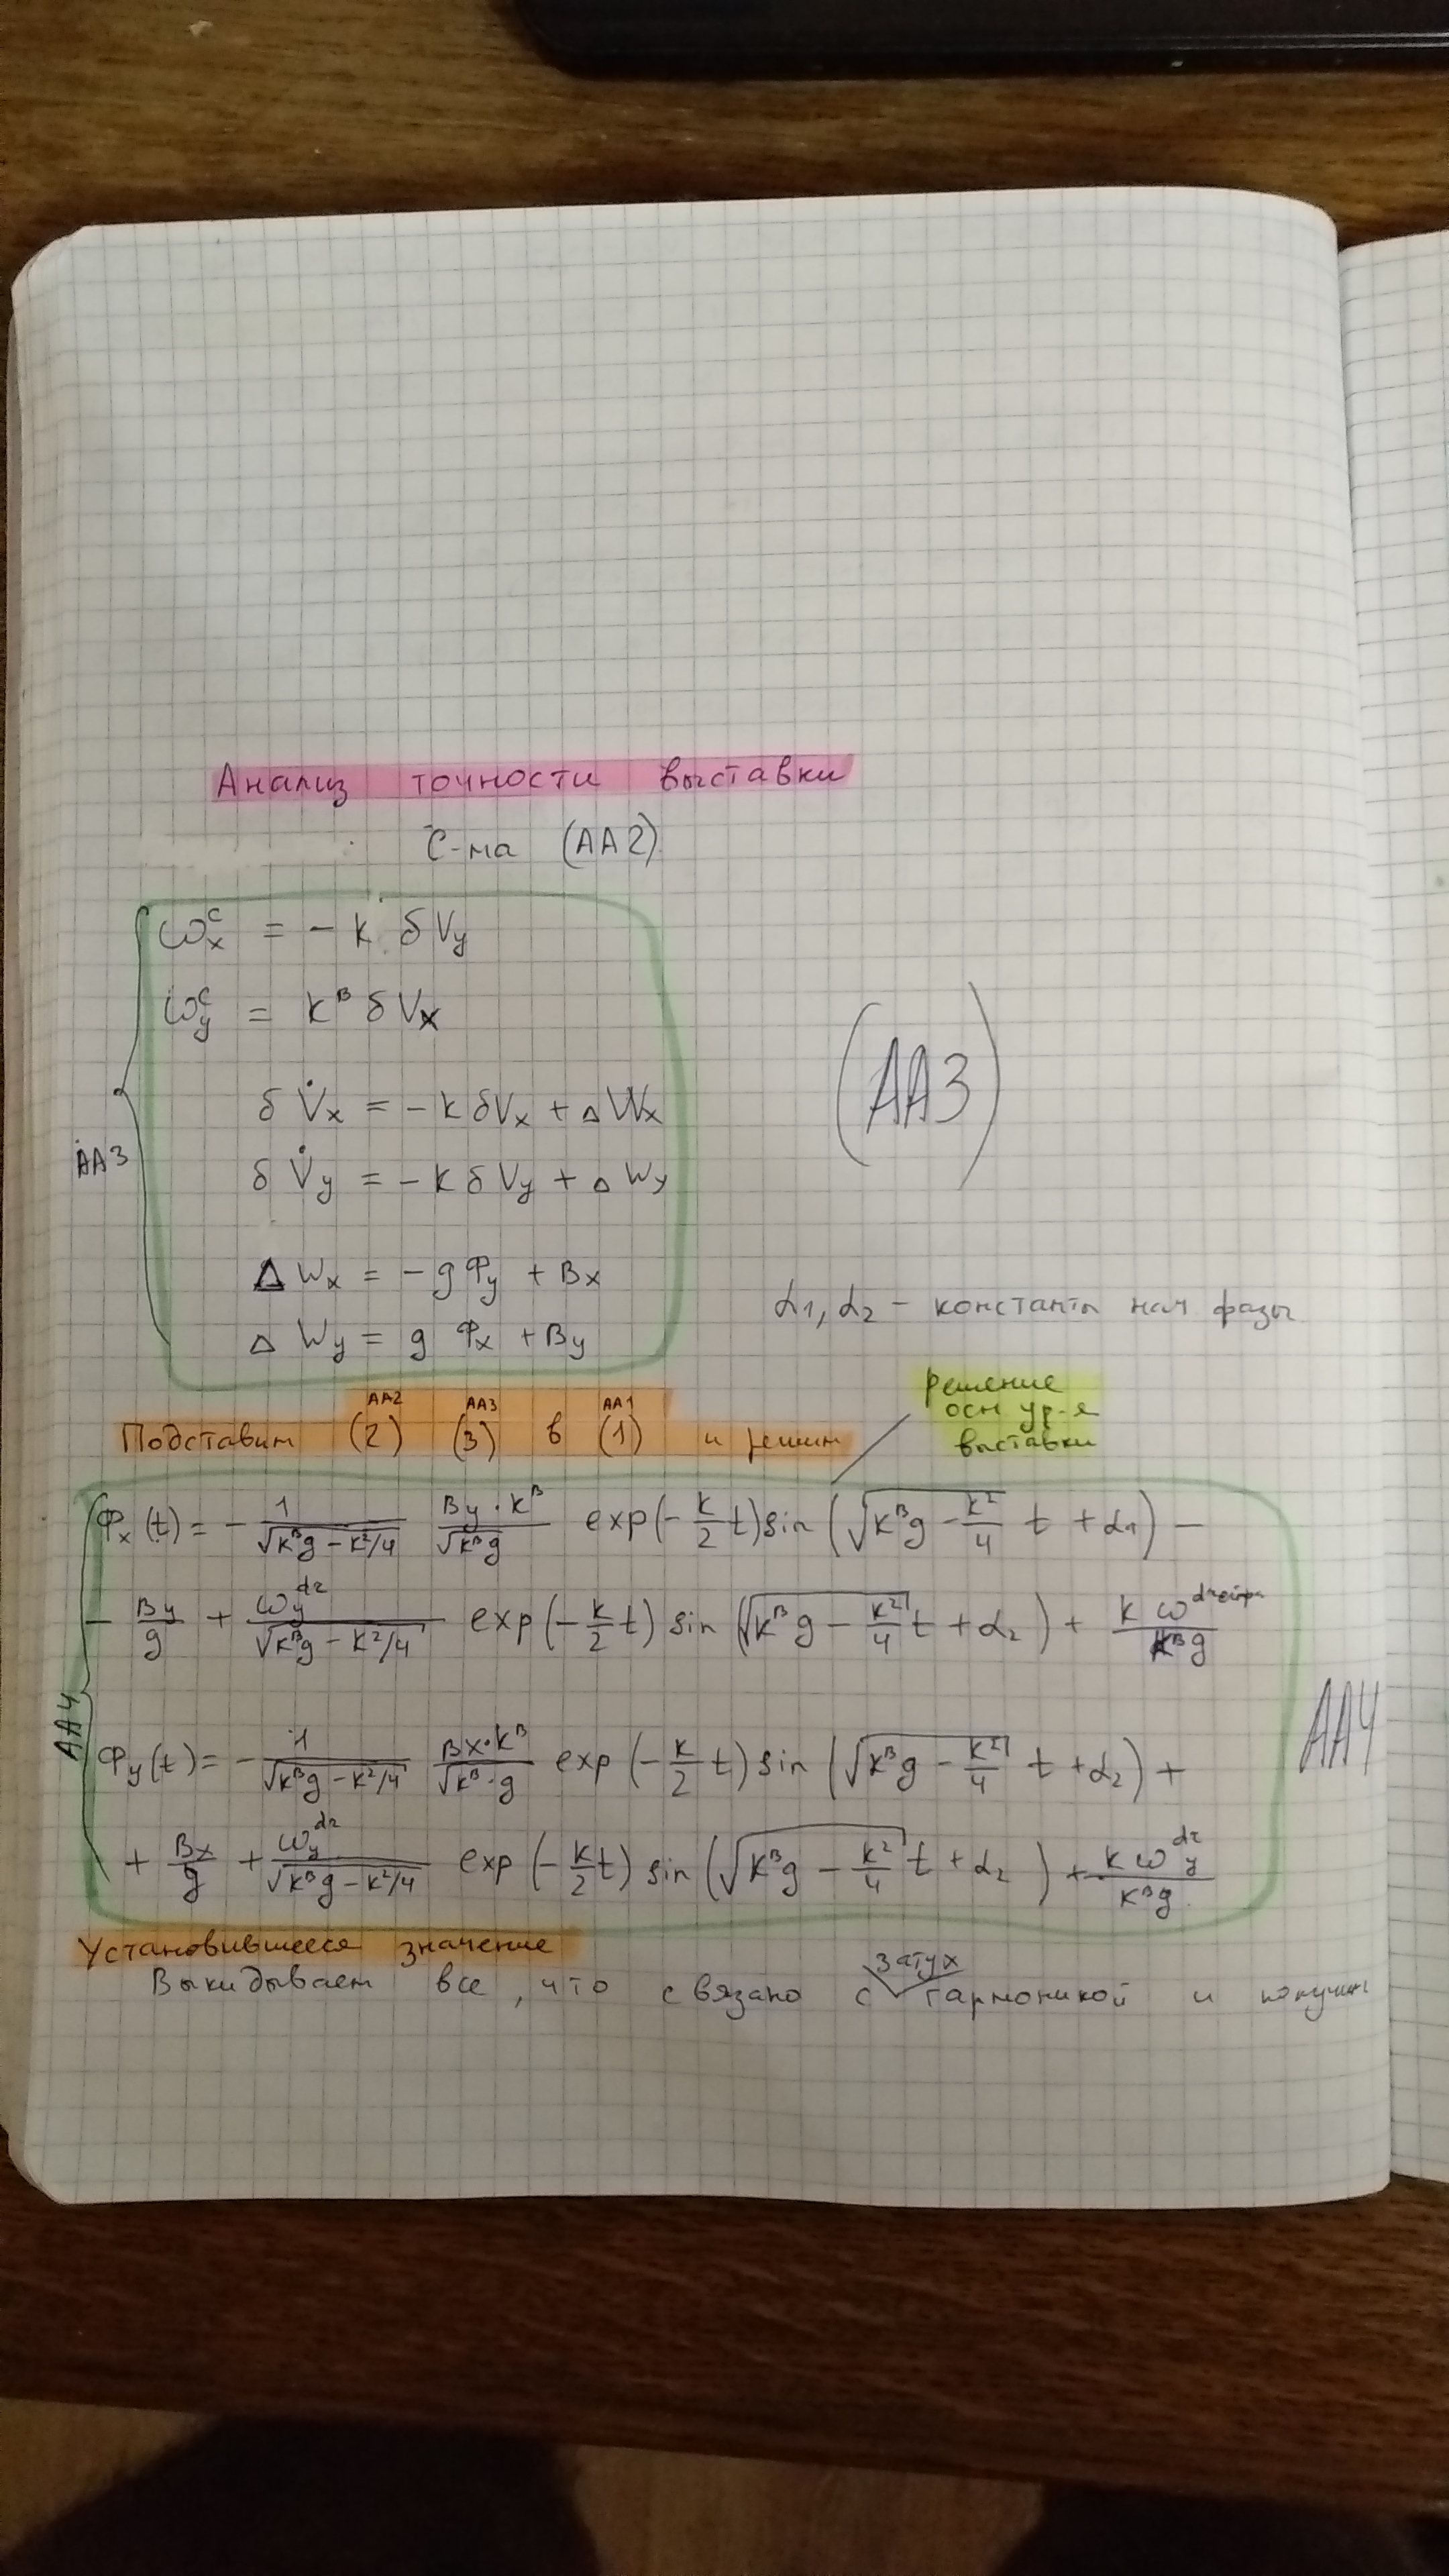 Анализ точности выставки
С-ма (AA2)
ω_x^c = - k δV_y
ω_y^c = k^B δV_x
δV̇_x = - k δV_x + ΔW_x
(AA3)
AA3
δV̇_y = - k δV_y + ΔW_y
ΔW_x = - g Φ_y + B_x
ΔW_y = g Φ_x + B_y
α1, α2 - константы нач фазы
решение
осн ур-я
выставки
AA2 AA3 AA1
Подставим (2) (3) в (1) и решим
Φ_x(t) = - 1/√(k^B g - k²/4) B_y·k^B/√(k^B g) exp(-k/2 t) sin(√(k^B g - k²/4) t + α1) -
- B_y/g + ω_y^dr/√(k^B g - k²/4) exp(-k/2 t) sin(√(k^B g - k²/4) t + α2) + k ω^дрейфа/k^B g
AA4
Φ_y(t) = - 1/√(k^B g - k²/4) B_x·k^B/√(k^B·g) exp(-k/2 t) sin(√(k^B g - k²/4) t + α2) +
AA4
+ B_x/g + ω_y^dr/√(k^B g - k²/4) exp(-k/2 t) sin(√(k^B g - k²/4) t + α2) + k ω_y^dr/k^B g
Установившееся значение
затух
Выкидываем все, что связано с гармоникой и получим